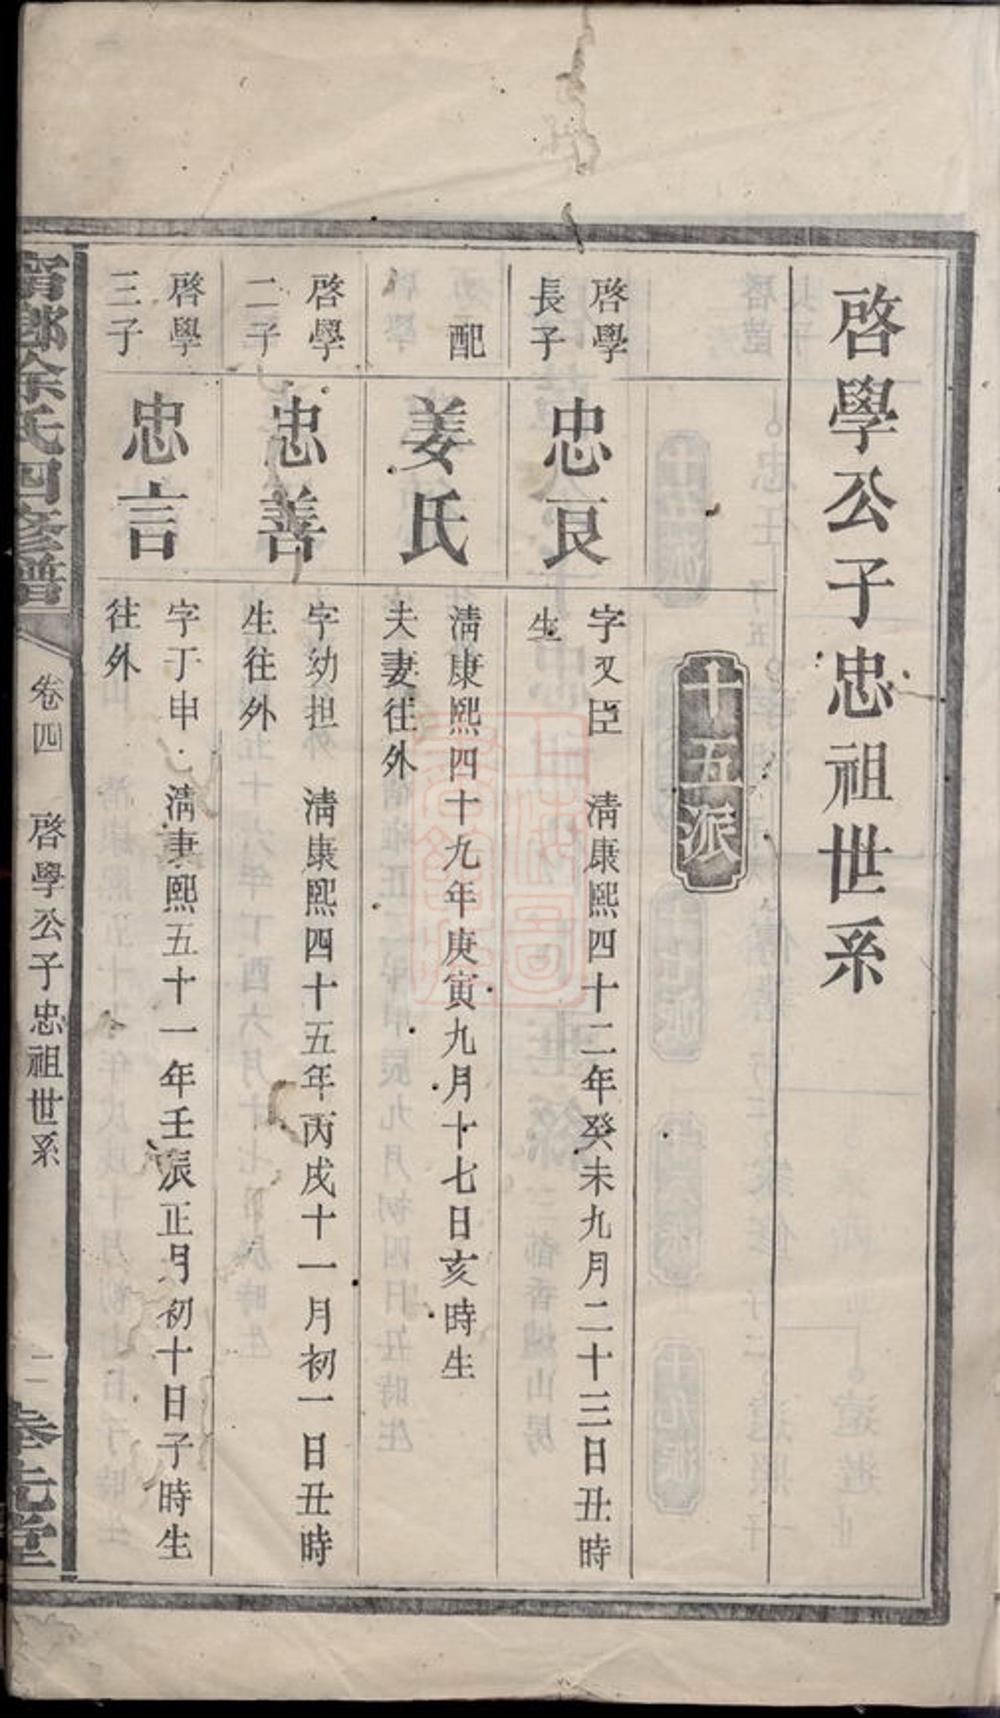 啓學公子忠祖世系
十五派
啓學
長子
忠良
字又臣 淸康熙四十二年癸未九月二十三日丑時
生
配
姜氏
淸康熙四十九年庚寅九月十七日亥時生
夫妻往外
啓學
二子
忠善
字幼担 淸康熙四十五年丙戌十一月初一日丑時
生往外
啓學
三子
忠言
字丁申 淸康熙五十一年壬辰正月初十日子時生
往外
徐氏四修譜
卷四
啓學公子忠祖世系
二
奉先堂